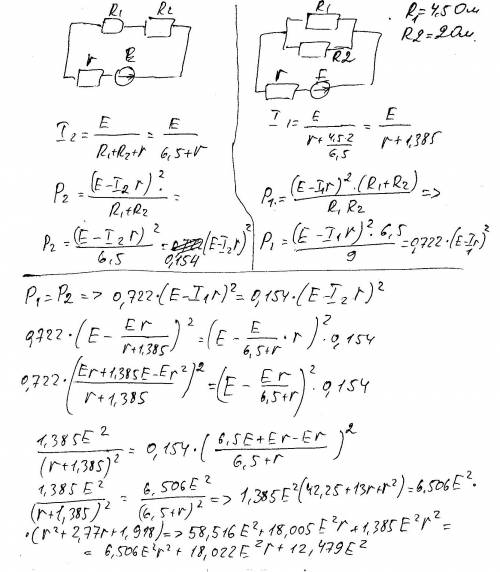 R1 R2
r E
R1
R2
r E
R1=4,5 Ом
R2=2 Ом.
I2 = E/(R1+R2+r) = E/(6,5+r)
P2 = (E-I2 r)²/(R1+R2) =
P2 = (E-I2 r)²/6,5 = 0,154 (E-I2 r)²
I1 = E/(r+4,5·2/6,5) = E/(r+1,385)
P1 = (E-I1 r)²·(R1+R2)/(R1 R2) =>
P1 = (E-I1 r)²·6,5/9 = 0,722·(E-I1 r)²
P1=P2 => 0,722·(E-I1 r)² = 0,154·(E-I2 r)²
0,722·(E - Er/(r+1,385))² = (E - E/(6,5+r)·r)²·0,154
0,722·((Er+1,385E-Er²)/(r+1,385))² = (E - Er/(6,5+r))²·0,154
1,385E²/(r+1,385)² = 0,154·((6,5E+Er-Er)/(6,5+r))²
1,385E²/(r+1,385)² = 6,506E²/(6,5+r)² => 1,385E²(42,25+13r+r²)=6,506E²·
·(r²+2,77r+1,918) => 58,516E²+18,005E²r+1,385E²r²=
= 6,506E²r²+18,022E²r+12,479E²